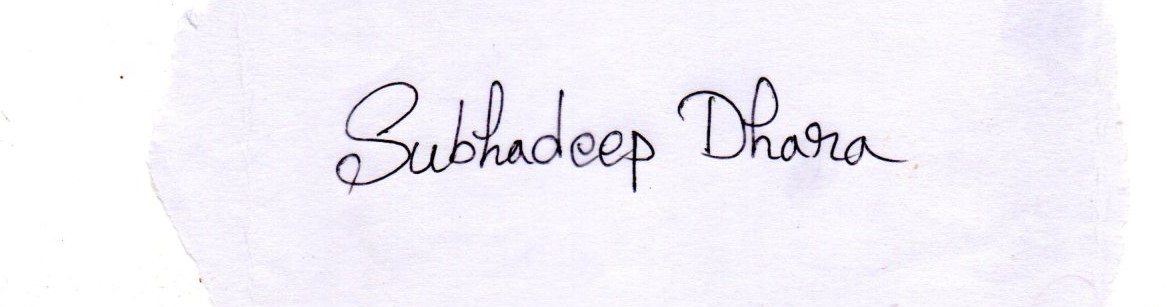 Subhadeep Dhara